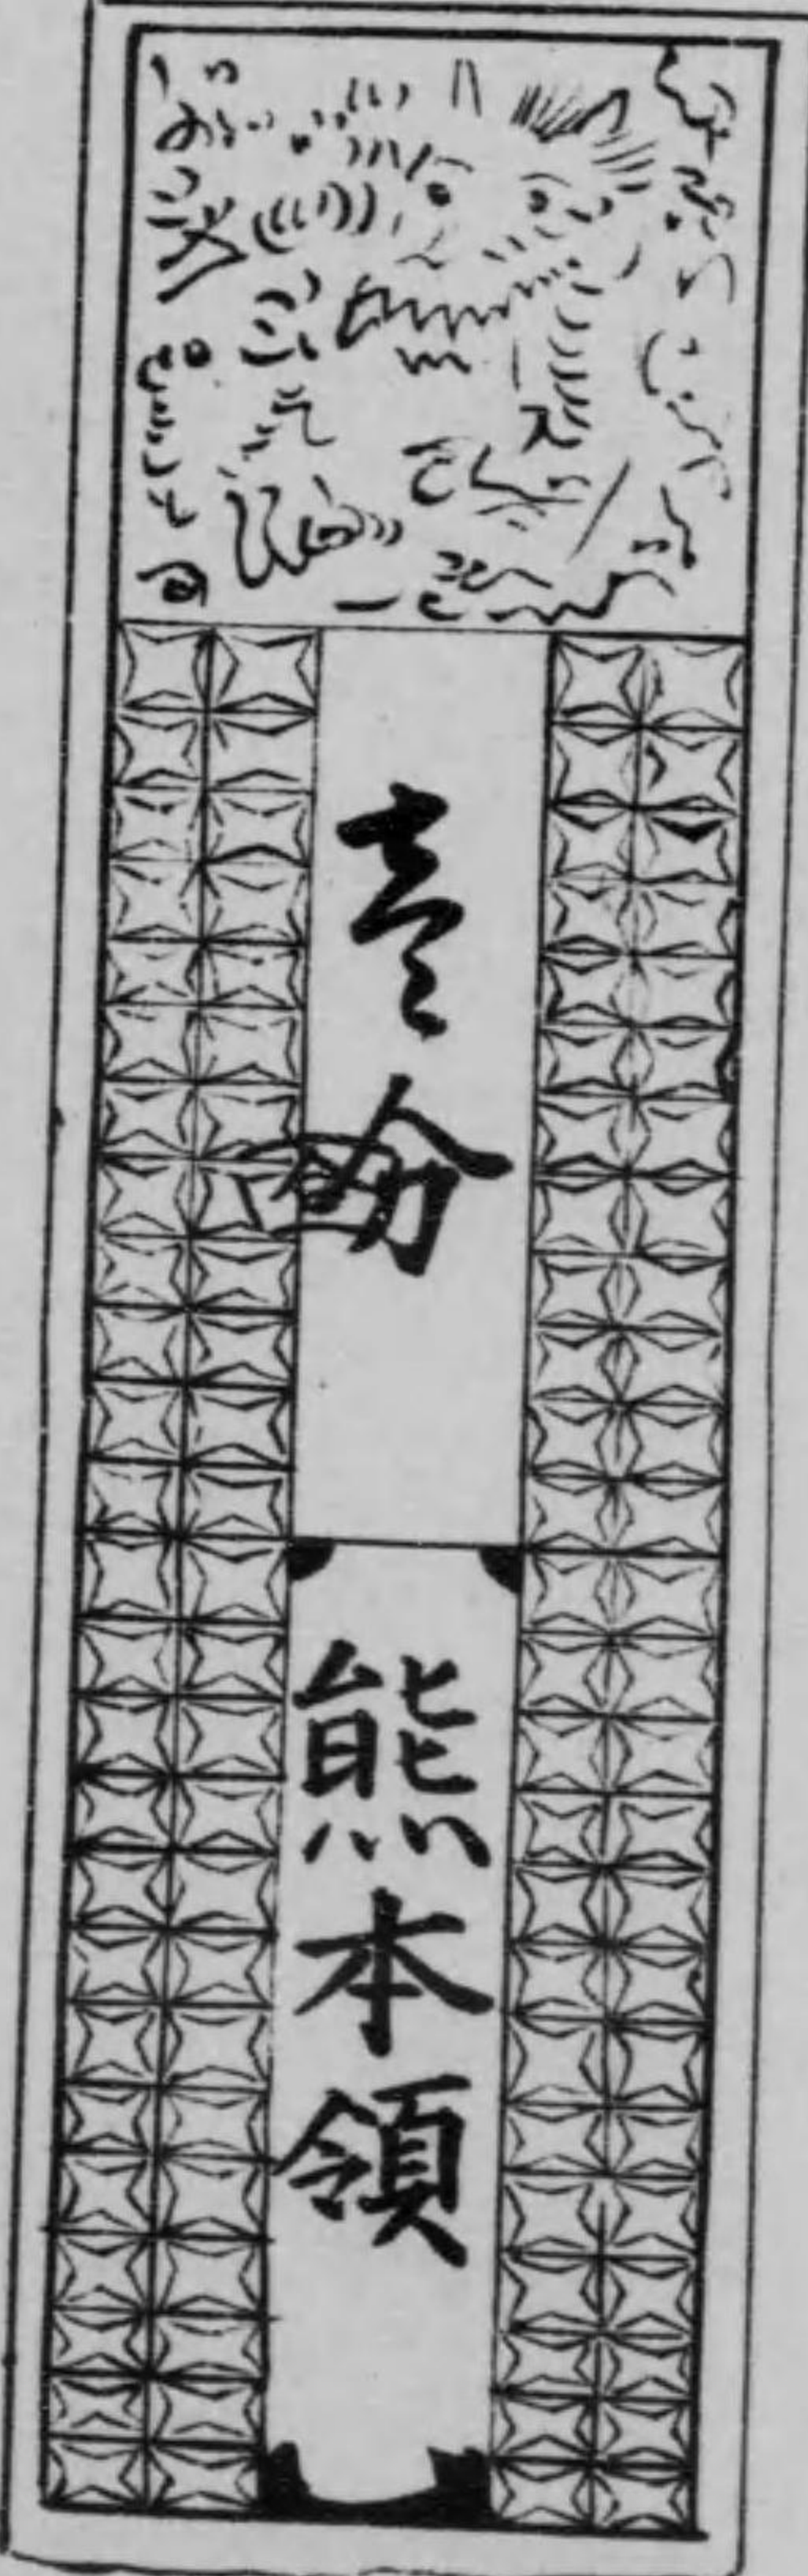 壱分
熊本領